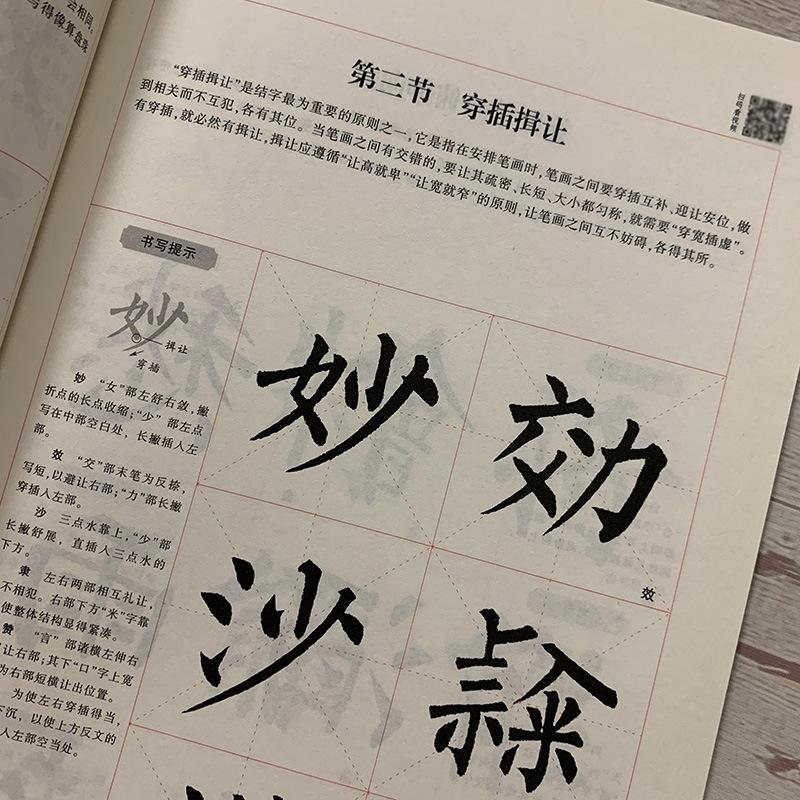 会相同。
写得像算盘珠
第三节 穿插揖让
扫码看视频
“穿插揖让”是结字最为重要的原则之一,它是指在安排笔画时,笔画之间要穿插互补、迎让安位,做
到相关而不互犯,各有其位。当笔画之间有交错的,要让其疏密、长短、大小都匀称,就需要“穿宽插虚”。
有穿插,就必然有揖让,揖让应遵循“让高就卑”“让宽就窄”的原则,让笔画之间互不妨碍,各得其所。
书写提示
妙
揖让
穿插
妙 “女”部左舒右敛,撇
折点的长点收缩;“少”部左点
写在中部空白处,长撇插人左
部。
效 “交”部末笔为反捺,
写短,以避让右部;“力”部长撇
穿插人左部。
沙 三点水靠上,“少”部
长撇舒展,直插人三点水的
下方。
隶 左右两部相互礼让,
不相犯。右部下方“米”字靠
使整体结构显得紧凑。
赞 “言”部诸横左伸右
让右部;其下“口”字上宽
为右部短横让出位置。
为使左右穿插得当,
下沉,以使上方反文的
人左部空当处。
妙
効
效
沙